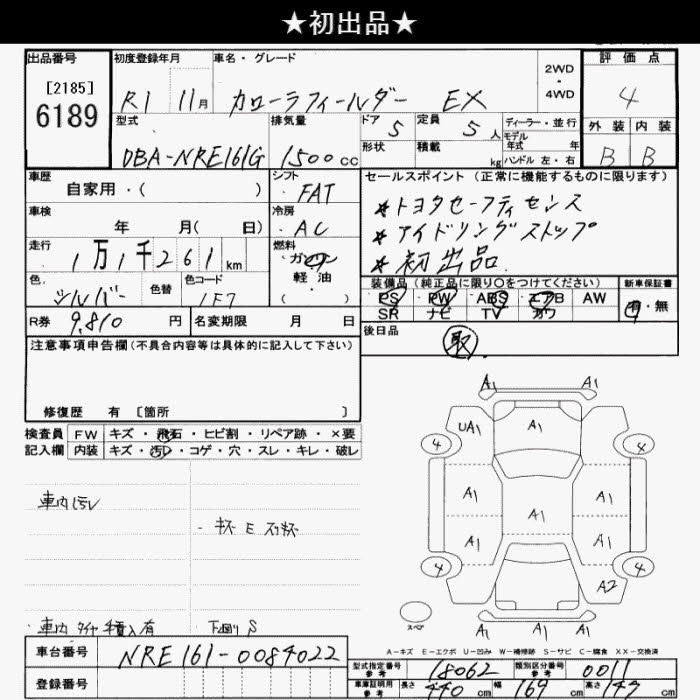 ★初出品★
出品番号
[2185]
6189
初度登録年月
R1 11月
車名・グレード
カローラフィールダー EX
2WD
・
4WD
評価点
4
型式
DBA-NRE161G
排気量
1500cc
ドア
5
定員
5人
形状
積載
kg
ディーラー・並行
モデル
年式 年
ハンドル 左・右
外装 内装
B B
車歴
自家用・( )
シフト
FAT
車検
年 月( 日)
冷房
AC
走行
1万1千261km
燃料
ガソリン
・
軽油
( )
色
シルバー
色替
色コード
1F7
R券 9,810円
名変期限 月 日
セールスポイント(正常に機能するものに限ります)
★トヨタセーフティセンス
★アイドリングストップ
★初出品
装備品(純正品に限り○をつけてください)
新車保証書
PS PW ABS エアB AW
SR ナビ TV カワ
有・無
後日品
取
注意事項申告欄(不具合内容等は具体的に記入して下さい)
修復歴 有 [箇所 ]
検査員 FW キズ・飛石・ヒビ割・リペア跡・×要
記入欄 内装 キズ・汚レ・コゲ・穴・スレ・キレ・破レ
車内汚レ
車内タイヤ積入有
下廻りS
A1 A1
UA1 A1
4 4
A1 A1
A1
A1 A1
4 4
A2
A1 A1
スペア
A-キズ E-エクボ U-凹み W-補修跡 S-サビ C-腐食 XX-交換済
車台番号
NRE161-0084022
登録番号
型式指定番号
参考
18062
類別区分番号
参考
0011
車庫証明用
参考
長さ 440cm 幅 169cm 高さ 147cm